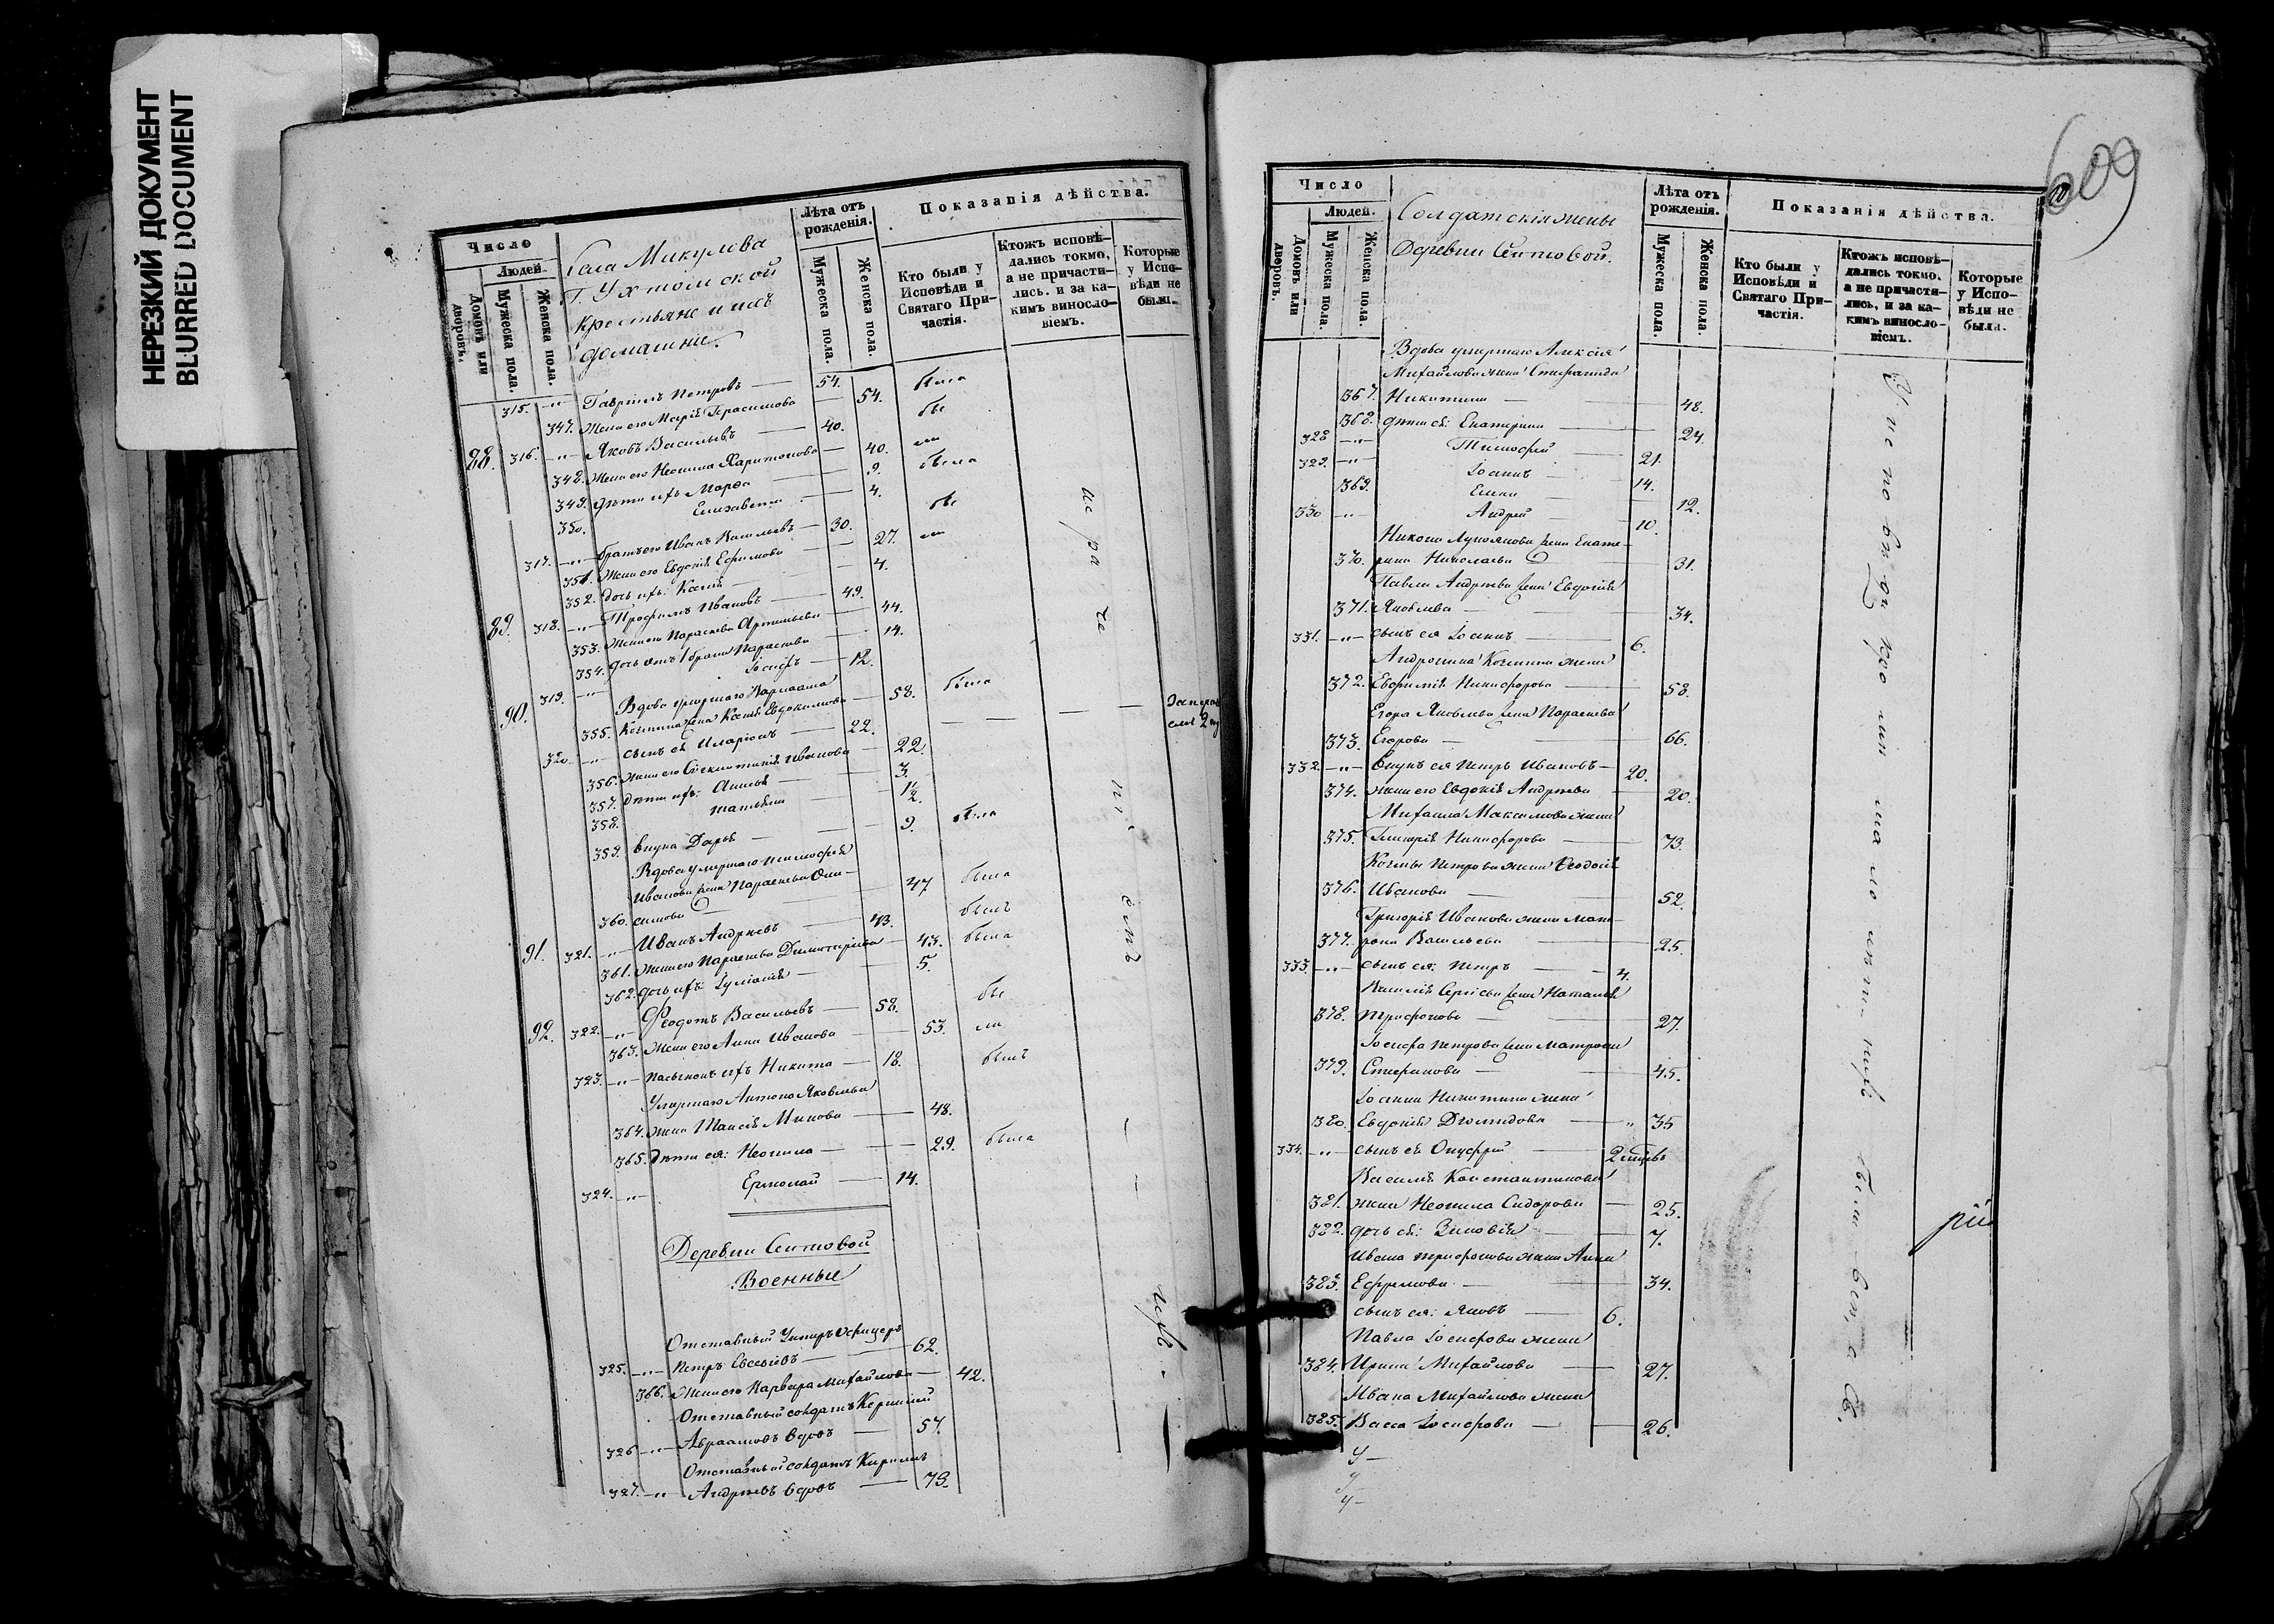 НЕРЕЗКИЙ ДОКУМЕНТ
BLURRED DOCUMENT
Число
Людей.
Домовъ или дворовъ.
Мужеска пола.
Женска пола.
Села Микулова
Г. Ухтомской
крестьяне и ихъ
домашни.
Лѣта отъ рожденія.
Мужеска пола.
Женска пола.
Показанія дѣйства.
Кто были у Исповѣди и Святаго Причастія.
Ктожъ исповѣдались токмо, а не причастились. и за какимъ винословіемъ.
Которые у Исповѣди не были.
315. —"— Гавріилъ Петровъ — 54. была
347. Жена его Марія Герасимова — 54. бы
88. 316. —"— Яковъ Васильевъ — 40.
348. Жена его Неонила Харитонова — 40. ли
349. дѣти ихъ Марѳа — 9. была
350. Елизавета — 4.
317. —"— братъ его Иванъ Васильевъ — 30. бы
351. Жена его Евдокія Ефимова — 27. ли
352. дочь ихъ: Ксенія — 4.
89. 318. —"— Трофимъ Ивановъ — 49.
353. Жена его Параскева Артемьева — 44.
354. дочь отъ 1 брака Параскева — 14.
319. —"— Іосифъ — 12.
90. Вдова умершаго Варлаама
355. Козмина жена Ксенія Евдокимова — 58. была
320. —"— сынъ ея Иларіонъ — 22.
356. жена его Ивановa — 22.
357. дѣти ихъ: Анисья — 3.
358. Татьяна — 1/2.
359. внука Дарья — 9. была
Вдова умершаго Тимофея
Иванова жена Параскева Они-
360. симова — 47 была
91. 321. —"— Иванъ Андреевъ — 43. былъ
361. Жена его Параскева Димитріева — 43. была
362. дочь ихъ Іуліанія — 5.
92. 322. —"— Ѳеодотъ Васильевъ — 58. бы
363. Жена его Анна Иванова — 53. ли
323. —"— пасынокъ ихъ Никита — 18. былъ
Умершаго Антона Яковлева
364. жена Таисія Минова — 48.
365. дѣти ея: Неонила — 29. была
324. —"— Ермолай — 14.
Деревни Сентовой
Военные
Отставный Унтеръ офицеръ
325. —"— Петръ Евсевіевъ — 62.
366. Жена его Варвара Михайлова — 42.
Отставный солдатъ
326 —"— Авраамовъ вдовъ — 57.
Отставный солдатъ Кирилъ
327. —"— Андреевъ вдовъ — 79.
609
Число
Людей.
Домовъ или дворовъ.
Мужеска пола.
Женска пола.
Солдатскія жены
Деревни Сентовой.
Лѣта отъ рожденія.
Мужеска пола.
Женска пола.
Показанія дѣйства.
Кто были у Исповѣди и Святаго Причастія.
Ктожъ исповѣдались токмо. а не причастились. и за какимъ винословіемъ.
Которые у Исповѣди не были.
Вдова умершаго Алексія
Михайлова жена Стефанида
367. Никитина — 48.
368. дѣти ея: Екатерина — 24.
328 —"— Тимофей — 21.
329. —"— Іоаннъ — 14.
369. Елена — 12.
330 —"— Андрей — 10.
Никона Лукоянова жена Екате-
370. рина Николаева — 31.
Павла Андреева жена Евдокія
371. Яковлева — 34.
331. —"— сынъ ея Іоаннъ — 6.
Андроника Козмина жена
372. Евфимія Никифорова — 58.
Егора Яковлева жена Параскева
373. Егорова — 66.
332. —"— внукъ ея Петръ Ивановъ — 20.
374. жена его Евдокія Андреева — 20.
Михаила Максимова жена
375. Гликерія Никифорова — 73.
Козмы Петрова жена Ѳеодосія
376. Иванова — 52.
Григорія Иванова жена Мат-
377. рона Васильева — 25.
333. —"— сынъ ея: Петръ — 4.
Василія Сергіева жена Наталія
378. Трифонова — 27.
Іосифа Петрова жена Матрона
379. Стефанова — 45.
Іоанна Никитина жена
380. Евдокія Діомидова — " 35
334. —"— сынъ ея Онуфрій — 2
Василія Константинова
381. жена Неонила Сидорова — 25.
382. дочь ея: Зиновія — 7.
Ивана Трифонова жена Анна
383. Ефремова — 34.
сынъ ея: Яковъ — 6.
Павла Іосифова жена
384. Ирина Михайлова — 27.
Ивана Михайлова жена
385. Васса Іосифова — 26.